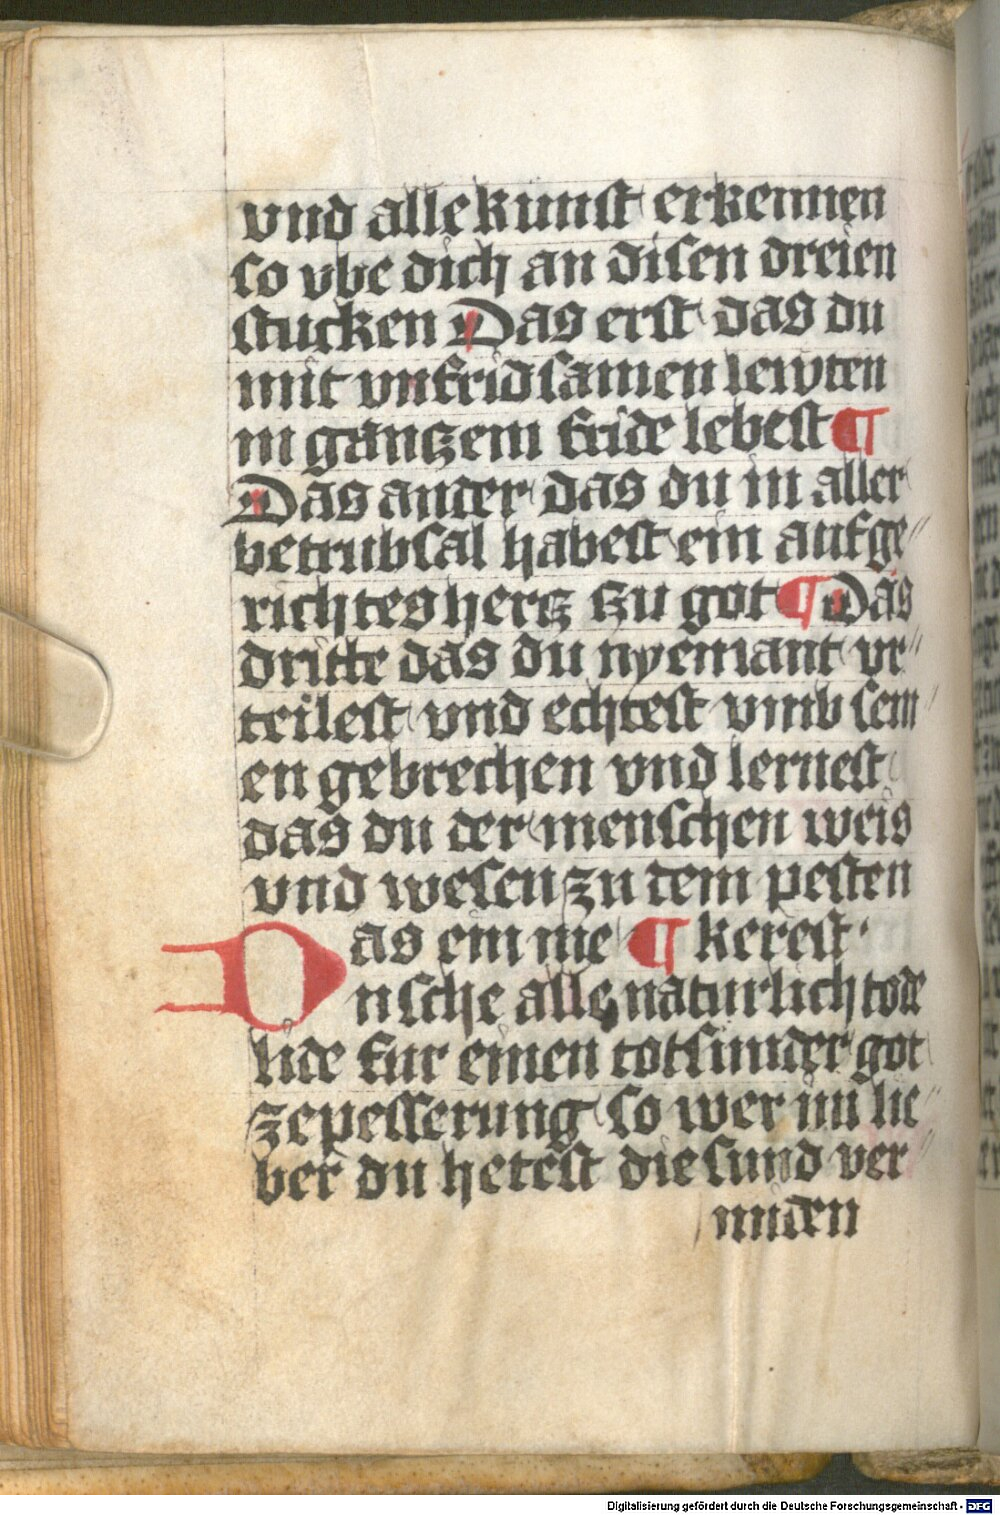 vnd alle kunst erkennen
so vbe dich an disen dreien
stucken Das erst das du
mit vnfridsamen lewten
in gantzem fride lebest ¶
Das ander das du in aller
betrubsal habest ein aufge〃
richtes hertz tzu got ¶ Das
dritte das du nyemant vr〃
teilest vnd echtest vmb sein〃
en gebrechen vnd lernest
das du der menschen weis
vnd wesen zu dem pesten
Das ein nie ¶ kerest
nsche alle naturlich tode
lide fur einen totsunder got
ze pesserung so wer im lie〃
ber du hetest die sund ver〃
miden
Digitalisierung gefördert durch die Deutsche Forschungsgemeinschaft - DFG